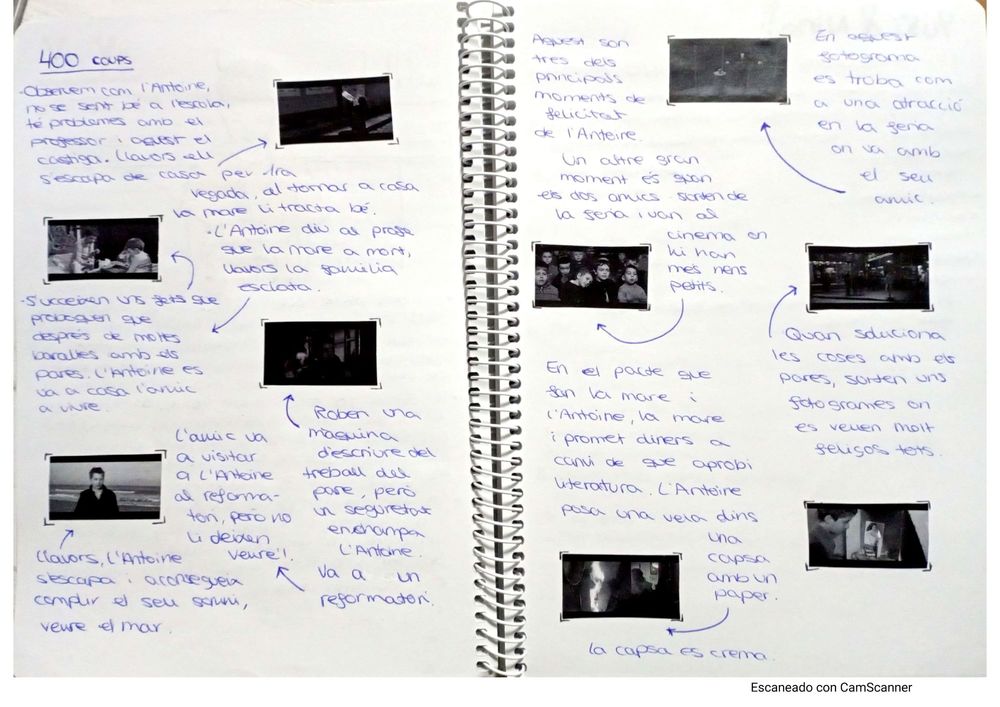 400 coups
-Observem com l'Antoine,
no se sent bé a l'escola,
té problemes amb el
professor i aquest el
castiga. Llavors ell
s'escapa de casa per 1ra
vegada, al tornar a casa
la mare li tracta bé.
-L'Antoine diu al profe
que la mare a mort,
llavors la família
esclata.
-Succeixen uns fets que
provoquen que
després de moltes
baralles amb els
pares. L'Antoine es
va a casa l'amic
a viure.
Roben una
màquina
d'escriure del
treball del
pare, però
un seguretat
enxampa
L'Antoine.
Va a un
reformatori.
L'amic va
a visitar
a l'Antoine
al reforma-
tori, però no
li deixen
veure'l.
Llavors, l'Antoine
s'escapa i aconsegueix
complir el seu somni,
veure el mar.
Aquest son
tres dels
principals
moments de
felicitat
de l'Antoine.
En aquest
fotograma
es troba com
a una atracció
en la feria
on va amb
el seu
amic.
Un altre gran
moment és quan
els dos amics sorten de
la feria i van al
cinema on
hi han
més nens
petits.
Quan soluciona
les coses amb els
pares, sorten uns
fotogrames on
es veuen molt
feliços tots.
En el pacte que
fan la mare i
l'Antoine, la mare
i promet diners a
canvi de que aprobi
literatura. L'Antoine
posa una vela dins
una
capsa
amb un
paper.
la capsa es crema.
Escaneado con CamScanner